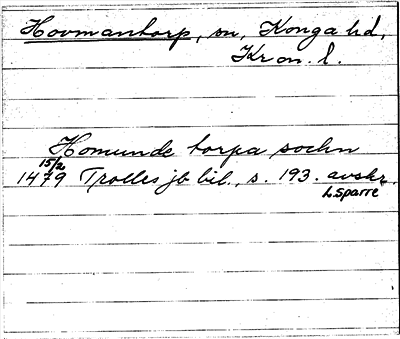 Hovmantorp, sn, Konga hd,
Kron. l.
Homunds torpa sochn
15/2
1479 Trolles jb bil., s. 193. avskr.
L. Sparre